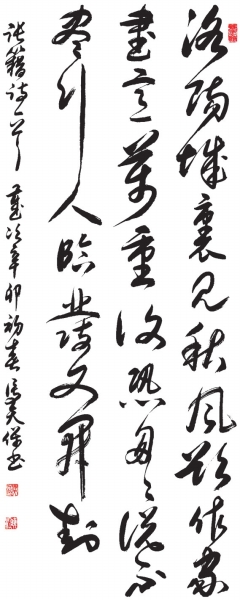 洛陽城裏見秋風欲作家
書意萬重復恐匆々說不
盡行人臨發又開封
張籍詩一首 歲次辛卯初春 書